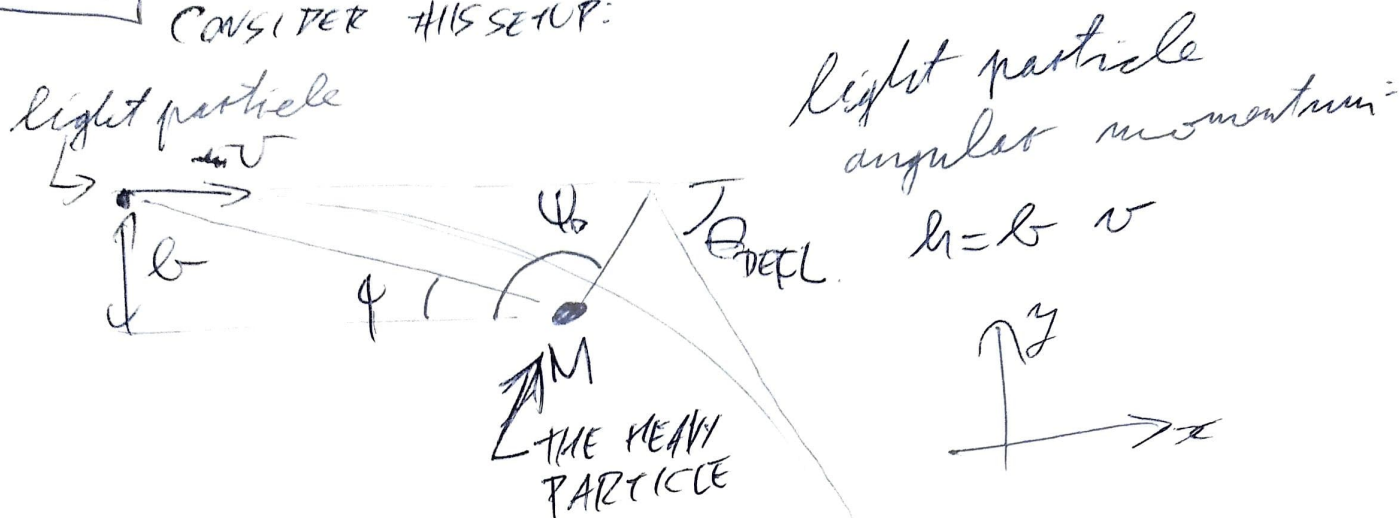 CONSIDER THIS SETUP:
light particle
v
b
φ
ψ₀
θ DEFL.
M
THE HEAVY
PARTICLE
light particle
angular momentum:
h = b v
y
x